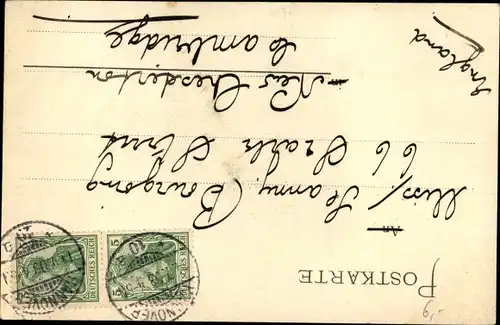 POSTKARTE
An
Miss Fanny Bourgong
66 Searle Street
New Chesterton
Cambridge
England
DEUTSCHES REICH
5
DEUTSCHES REICH
HANNOVER
HANNOVER